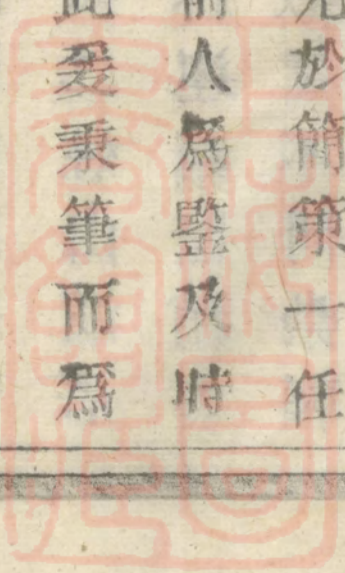 於簡策一任
前人爲鑒及時
此爰秉筆而爲